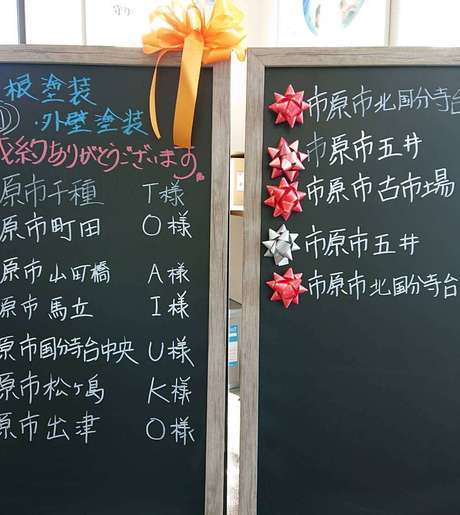 根塗装
①・外壁塗装
成約ありがとうございます
原市千種 T様
原市町田 O様
原市山田橋 A様
原市馬立 I様
原市国分寺台中央 U様
原市松ヶ島 K様
原市出津 O様
市原市北国分寺台
市原市五井
市原市古市場
市原市五井
市原市北国分寺台